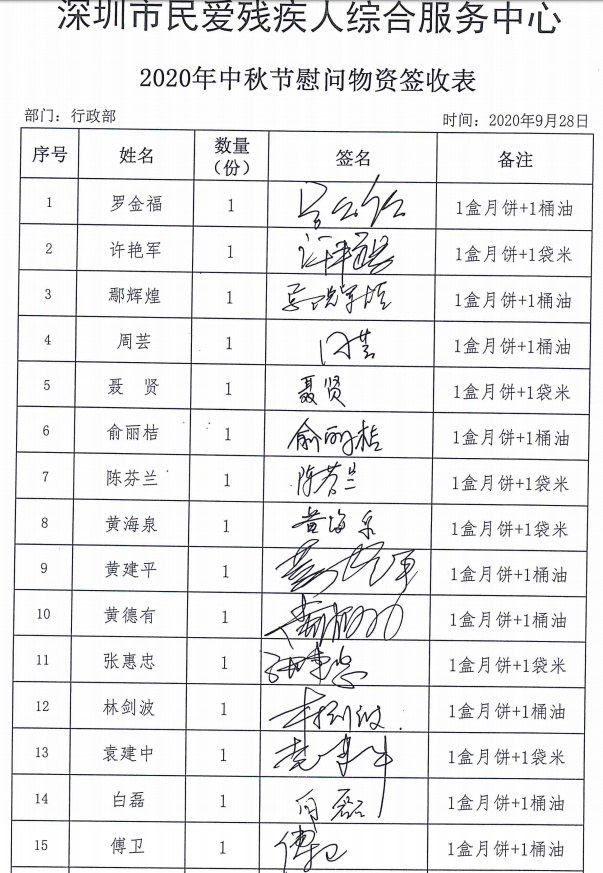 深圳市民爱残疾人综合服务中心
2020年中秋节慰问物资签收表
部门：行政部 时间：2020年9月28日
序号 姓名 数量（份） 签名 备注
1 罗金福 1 1盒月饼+1桶油
2 许艳军 1 1盒月饼+1袋米
3 鄢辉煌 1 1盒月饼+1桶油
4 周芸 1 周芸 1盒月饼+1桶油
5 聂贤 1 聂贤 1盒月饼+1袋米
6 俞丽桔 1 俞丽桔 1盒月饼+1桶油
7 陈芬兰 1 陈芬兰 1盒月饼+1袋米
8 黄海泉 1 黄海泉 1盒月饼+1袋米
9 黄建平 1 1盒月饼+1桶油
10 黄德有 1 1盒月饼+1桶油
11 张惠忠 1 1盒月饼+1袋米
12 林剑波 1 林剑波 1盒月饼+1桶油
13 袁建中 1 1盒月饼+1袋米
14 白磊 1 白磊 1盒月饼+1桶油
15 傅卫 1 傅卫 1盒月饼+1桶油